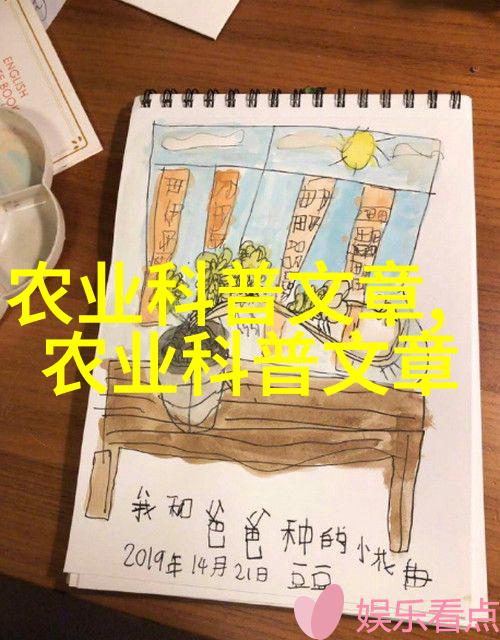 ENGLISH
农业科普文章,
农业科普文章
我和爸爸种的小花
2019年14月21日 豆豆
娱乐看点